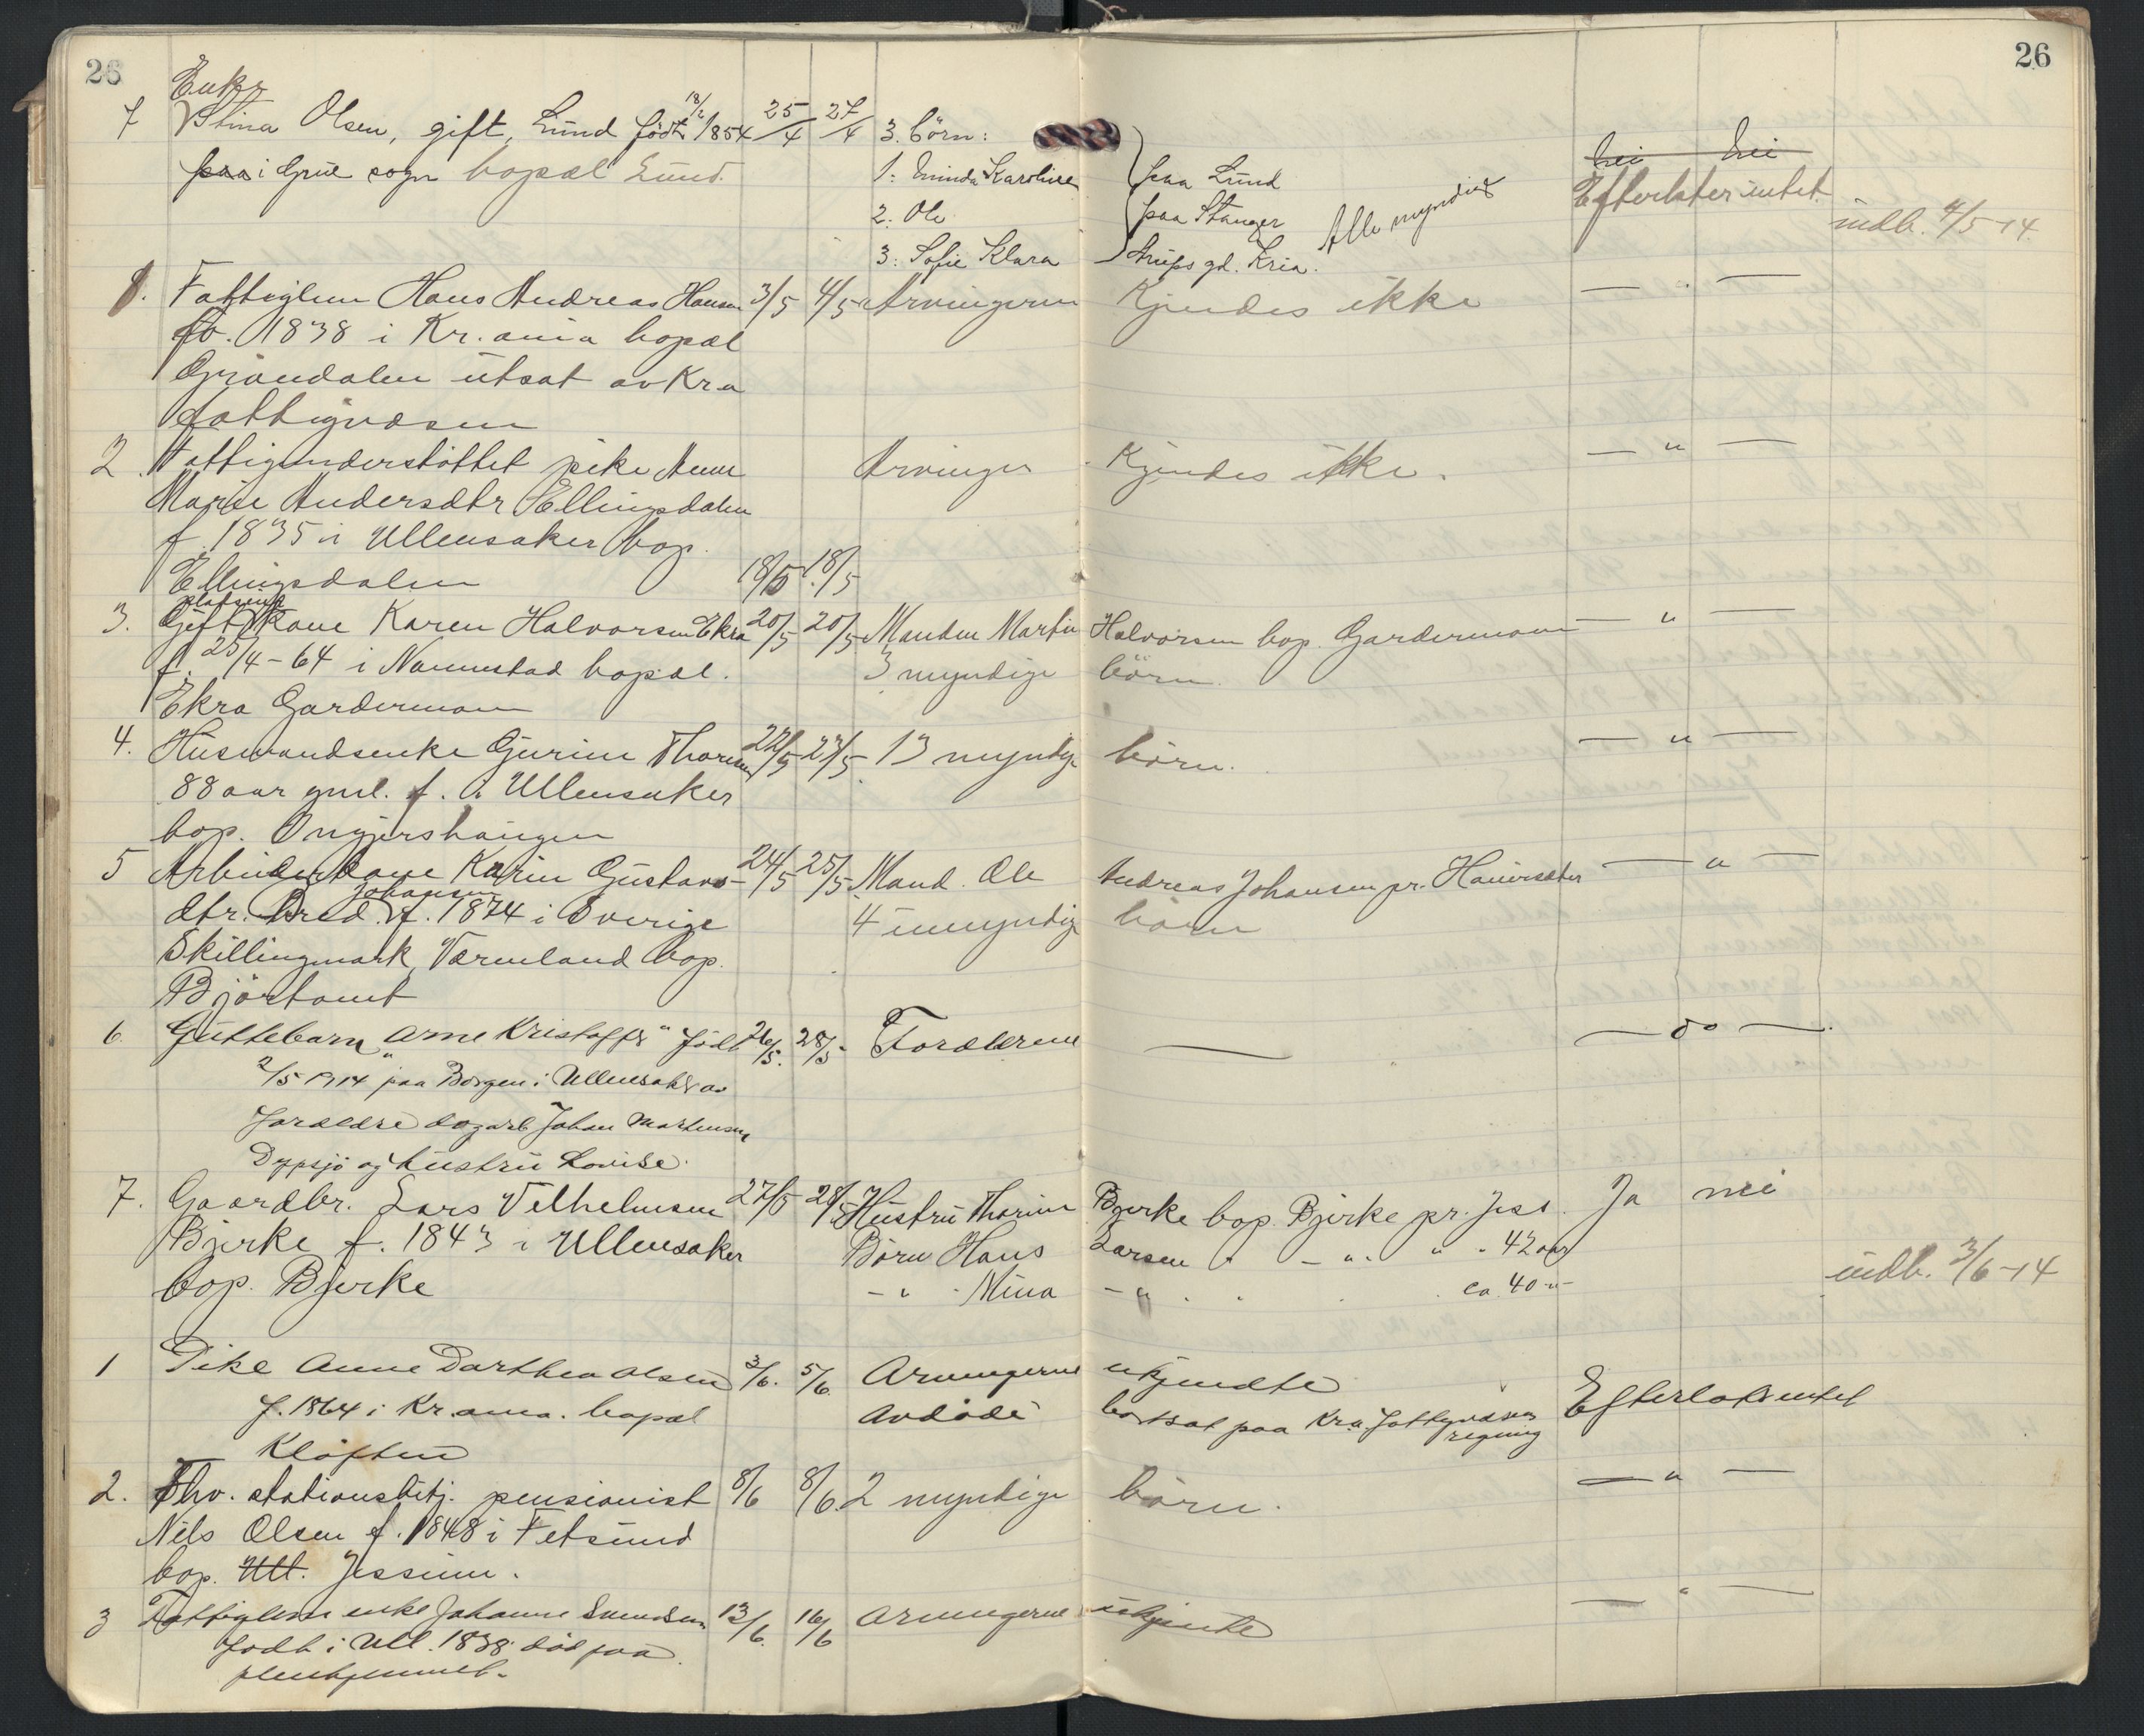 26
26
Enke
7 Stina Olsen, gift, Lund født 18/2 1854 25/4 27/4 3. börn:
paa i Grue sogn bopæl Lund.
1. Eminda Karoline paa Lund
2. Ole paa Stanger Alle myndig
3. Sofie Klara Arups gd. Kria.
nei nei
Efterlater intet.
indb. 4/5-14.
1. Fattiglem Hans Andreas Hansen 3/5 4/5 Arvingerne Kjendes ikke — " —
fö. 1838 i Kr.ania bopæl
Gröndalen utsat av Kra
fattigvæsen
2. Fattigunderstöttet pike Anne Arvinger Kjendes ikke. — " —
Marie Andersdtr Ellingsdalen
f. 1835 i Ullensaker bop.
Ellingsdalen 18/5 18/5
3. Gift kone Karen Halvorsen Ekra 20/5 20/5 Manden Martin Halvorsen bop. Gardermoen — " —
f. 25/4-64 i Nannestad bopæl. 3 myndige börn.
Ekra Gardermoen
4. Husmandsenke Gurine Thoresen 22/5 23/5 13 myndige börn. — " —
88 aar gml. f. i Ullensaker
bop. Ongjershaugen
5 Arbeiderkone Karin Gustavs- 24/5 25/5 Mand. Ole Andreas Johansen pr. Hauersæter — " —
Johansen
dtr. f. 1874 i Sverige 4 umyndige börn
Skillingmark, Værmland bop.
Björtomt
6. Guttebarn "Arne Kristoffer" född 26/5. 28/5 Forældrene — — do —
2/5 1914 paa Borgen i Ullensaker av
forældre dagarb Johan Martinsen
Dypsjö og hustru Lovise.
7. Gaardbr. Lars Vilhelmsen 27/5 28/5 Hustru Thorine Bjerke bop. Bjerke pr. Jess. Ja nei
Bjerke f. 1843 i Ullensaker Börn Hans Larsen " - " " 42 aar
bop. Bjerke - " - Mina - " ca. 40 "
indb. 3/6-14
1 Pike Anne Darthea Olsen 3/6. 5/6. Arvingerne ukjendte
f. 1864 i Kr.ania. bopæl Avdöde bortsat paa Kra. Fattigvæsens regning Efterlot intet
Klöften
2. Fhv. stationsbetj. pensionist 8/6 8/6. 2 myndige börn. — " —
Nils Olsen f. 1848 i Fetsund
bop. Ull. Jessum.
3 Fattiglem enke Johanne Svendsen 13/6. 16/6 Arvingerne ukjente — " —
född i Ull. 1838. död paa
pleiehjemmet.